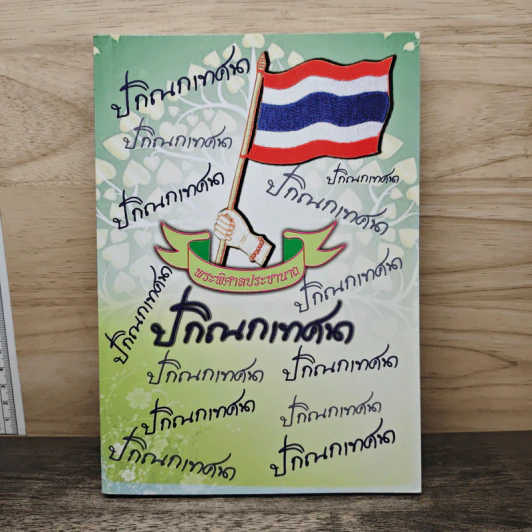 ปกิณกเทศนา
ปกิณกเทศนา
ปกิณกเทศนา
ปกิณกเทศนา
ปกิณกเทศนา
พระพิศาลประชานาถ
ปกิณกเทศนา
ปกิณกเทศนา
ปกิณกเทศนา
ปกิณกเทศนา
ปกิณกเทศนา
ปกิณกเทศนา
ปกิณกเทศนา
ปกิณกเทศนา
ปกิณกเทศนา